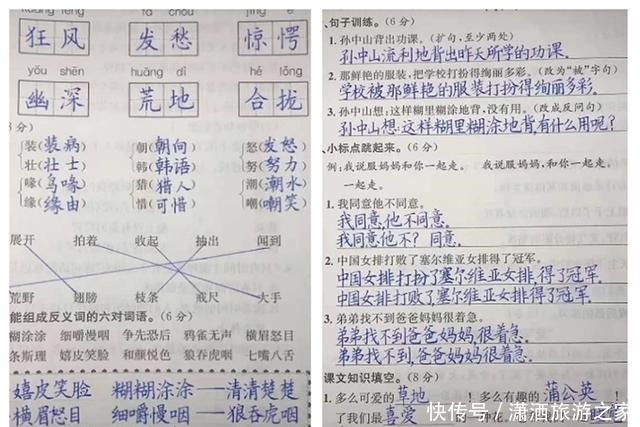 fā chóu
狂风 发愁 惊愕
yōu shēn huāng dì hé lǒng
幽深 荒地 合拢
8分)
装(装病) 朝(朝向) 怒(发怒)
壮(壮士) 韩(韩语) 努(努力)
喙(鸟喙) 猎(猎人) 潮(潮水)
缘(缘由) 惜(可惜) 嘲(嘲笑)
展开 拍着 收起 抽出 闻到
荒野 翅膀 枝条 戒尺 大手
能组成反义词的六对词语。(6分)
糊涂涂 细嚼慢咽 争先恐后 鸦雀无声 横眉怒目
条斯理 嬉皮笑脸 和颜悦色 狼吞虎咽 七嘴八舌
嬉皮笑脸 糊糊涂涂——清清楚楚
横眉怒目 细嚼慢咽——狼吞虎咽
、句子训练。(6分)
1.孙中山背出功课。(扩句,至少两处)
孙中山流利地背出昨天所学的功课.
2.那鲜艳的服装,把学校打扮得绚丽多彩。(改为“被”字句)
学校被那鲜艳的服装打扮得绚丽多彩.
3.孙中山想:这样糊里糊涂地背,没有用。(改成反问句)
孙中山想:这样糊里糊涂地背,有什么用呢?
小标点跳起来。(6分)
例:我说服妈妈和你一起走。 我说服妈妈,和你一起走。
一起走。
1.我同意他不同意。
我同意,他不同意.
我同意他不?同意.
2.中国女排打败了塞尔维亚女排得了冠军。
中国女排打扮了塞尔维亚女排,得了冠军.
中国女排打败了塞尔维亚女排得了冠军.
3.弟弟找不到爸爸妈妈很着急。
弟弟找不到爸爸妈妈,很着急.
弟弟找不到,爸爸妈妈很着急.
课文知识填空。(8分)
1.多么可爱的草地!多么有趣的蒲公英!
了我们最喜爱的一种花
快传号/潇洒旅游之家